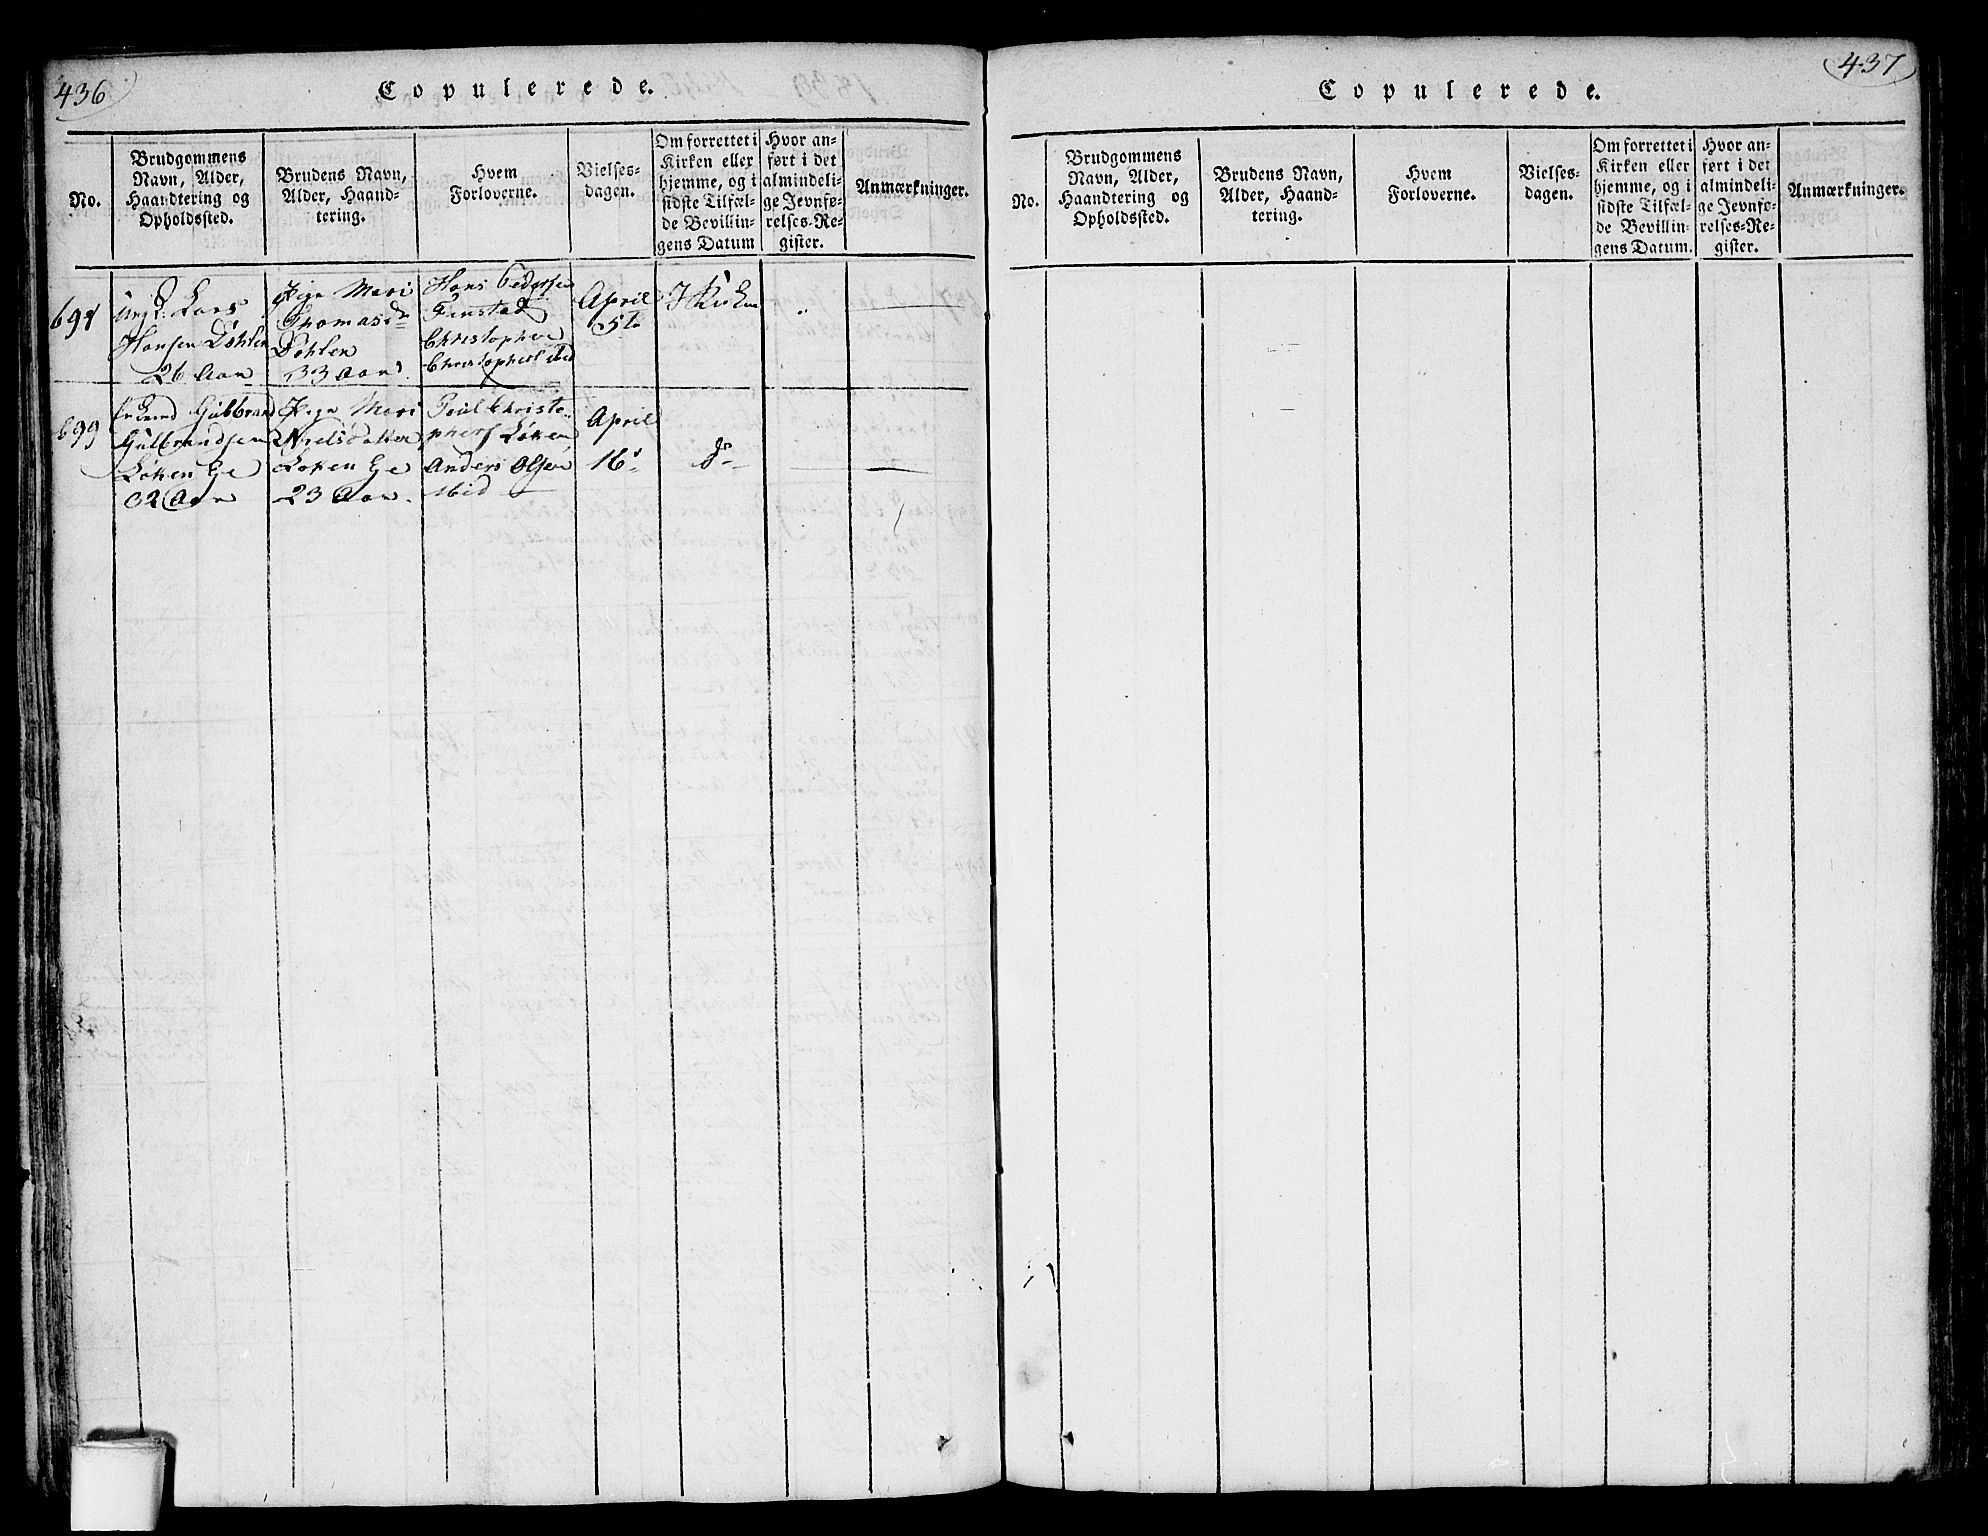 436
Copulerede.
No.
Brudgommens
Navn, Alder,
Haandtering og
Opholdssted.
Brudens Navn,
Alder, Haand-
tering.
Hvem
Forloverne.
Vielses-
dagen.
Om forrettet i
Kirken eller
hjemme, og i
sidste Tilfæl-
de Bevillin-
gens Datum
Hvor an-
ført i det
almindeli-
ge Jevnfø-
relses-Re-
gister.
Anmærkninger.
Ungk: Lars
Hansen Döhlen
26 Aar
Pige Mari
Thomasd
Döhlen
33 Aar
Hans Pedersen
Finstad
Christopher
Christophers ibid
April
5te
I Kirken
699
Gulbrand
Gulbrandsen
Löken Ee
32 Aar
Pige Mari
Nielsdatter
Löken Ee
23 Aar.
Poul Christo-
phers Löken
Anders Olsen
ibid
April
16
do
437
Copulerede.
No.
Brudgommens
Navn, Alder,
Haandtering og
Opholdssted.
Brudens Navn,
Alder, Haand-
tering.
Hvem
Forloverne.
Vielses-
dagen.
Om forrettet i
Kirken eller
hjemme, og i
sidste Tilfæl-
de Bevillin-
gens Datum.
Hvor an-
ført i det
almindeli-
ge Jevnfø-
relses-Re-
gister.
Anmærkninger.